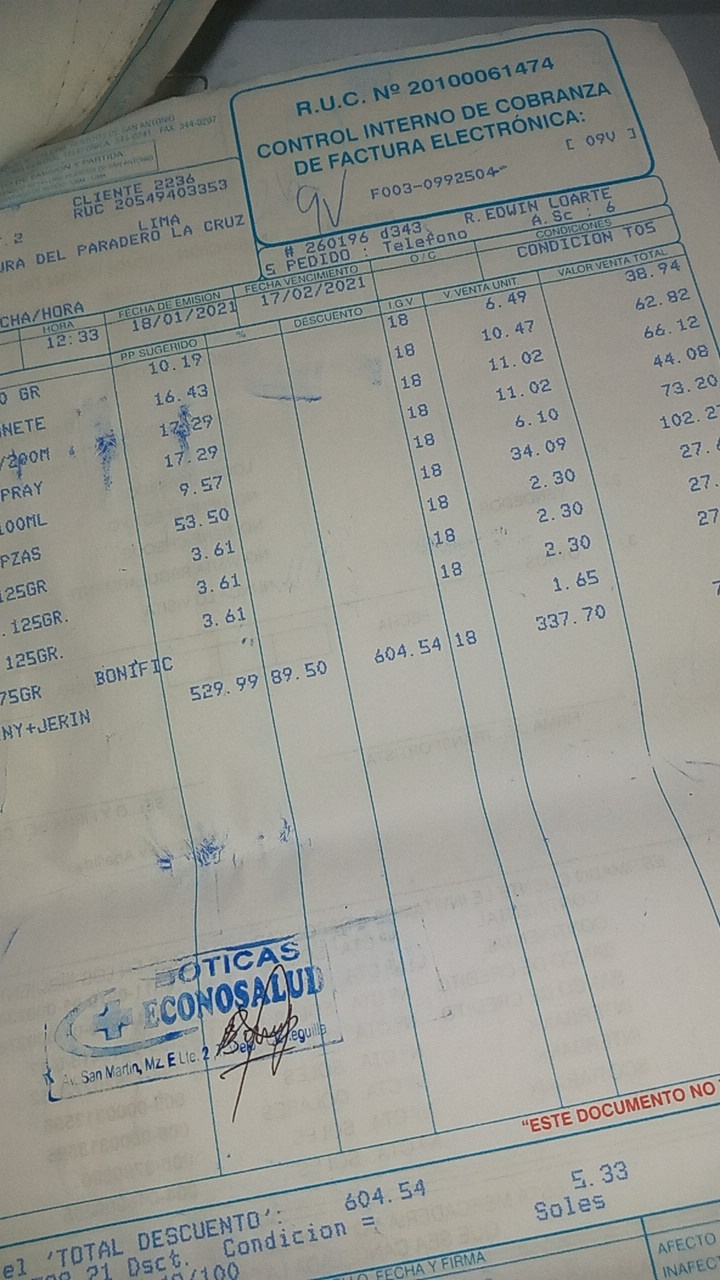 R.U.C. Nº 20100061474
CONTROL INTERNO DE COBRANZA
DE FACTURA ELECTRÓNICA:
[ 09V ]
9V F003-0992504
FAX 344-0207
CLIENTE 2236
RUC 20549403353
LIMA
URA DEL PARADERO LA CRUZ
# 260196 d343 R.EDWIN LOARTE
S PEDIDO : Telefono A.Sc : 6
O / C CONDICIONES
CONDICION T05
CHA/HORA
HORA FECHA DE EMISION FECHA VENCIMIENTO
12:33 18/01/2021 17/02/2021
PP SUGERIDO % DESCUENTO I.G.V V. VENTA UNIT. VALOR VENTA TOTAL
GR 10.19 18 6.49 38.94
NETE 16.43 18 10.47 62.82
17.29 18 11.02 66.12
PRAY 17.29 18 11.02 44.08
100ML 9.57 18 6.10 73.20
PZAS 53.50 18 34.09 102.2
125GR 3.61 18 2.30 27.
. 125GR. 3.61 18 2.30 27.
125GR. 3.61 18 2.30 27
75GR BONIFIC 1.65
NY+JERIN 529.99 89.50 604.54 18 337.70
BOTICAS
ECONOSALUD
Av. San Martin, Mz. E Lte. 2
"ESTE DOCUMENTO NO
el 'TOTAL DESCUENTO': 604.54 5.33
21 Dsct. Condicion = Soles
/100
FECHA Y FIRMA
AFECTO
INAFEC